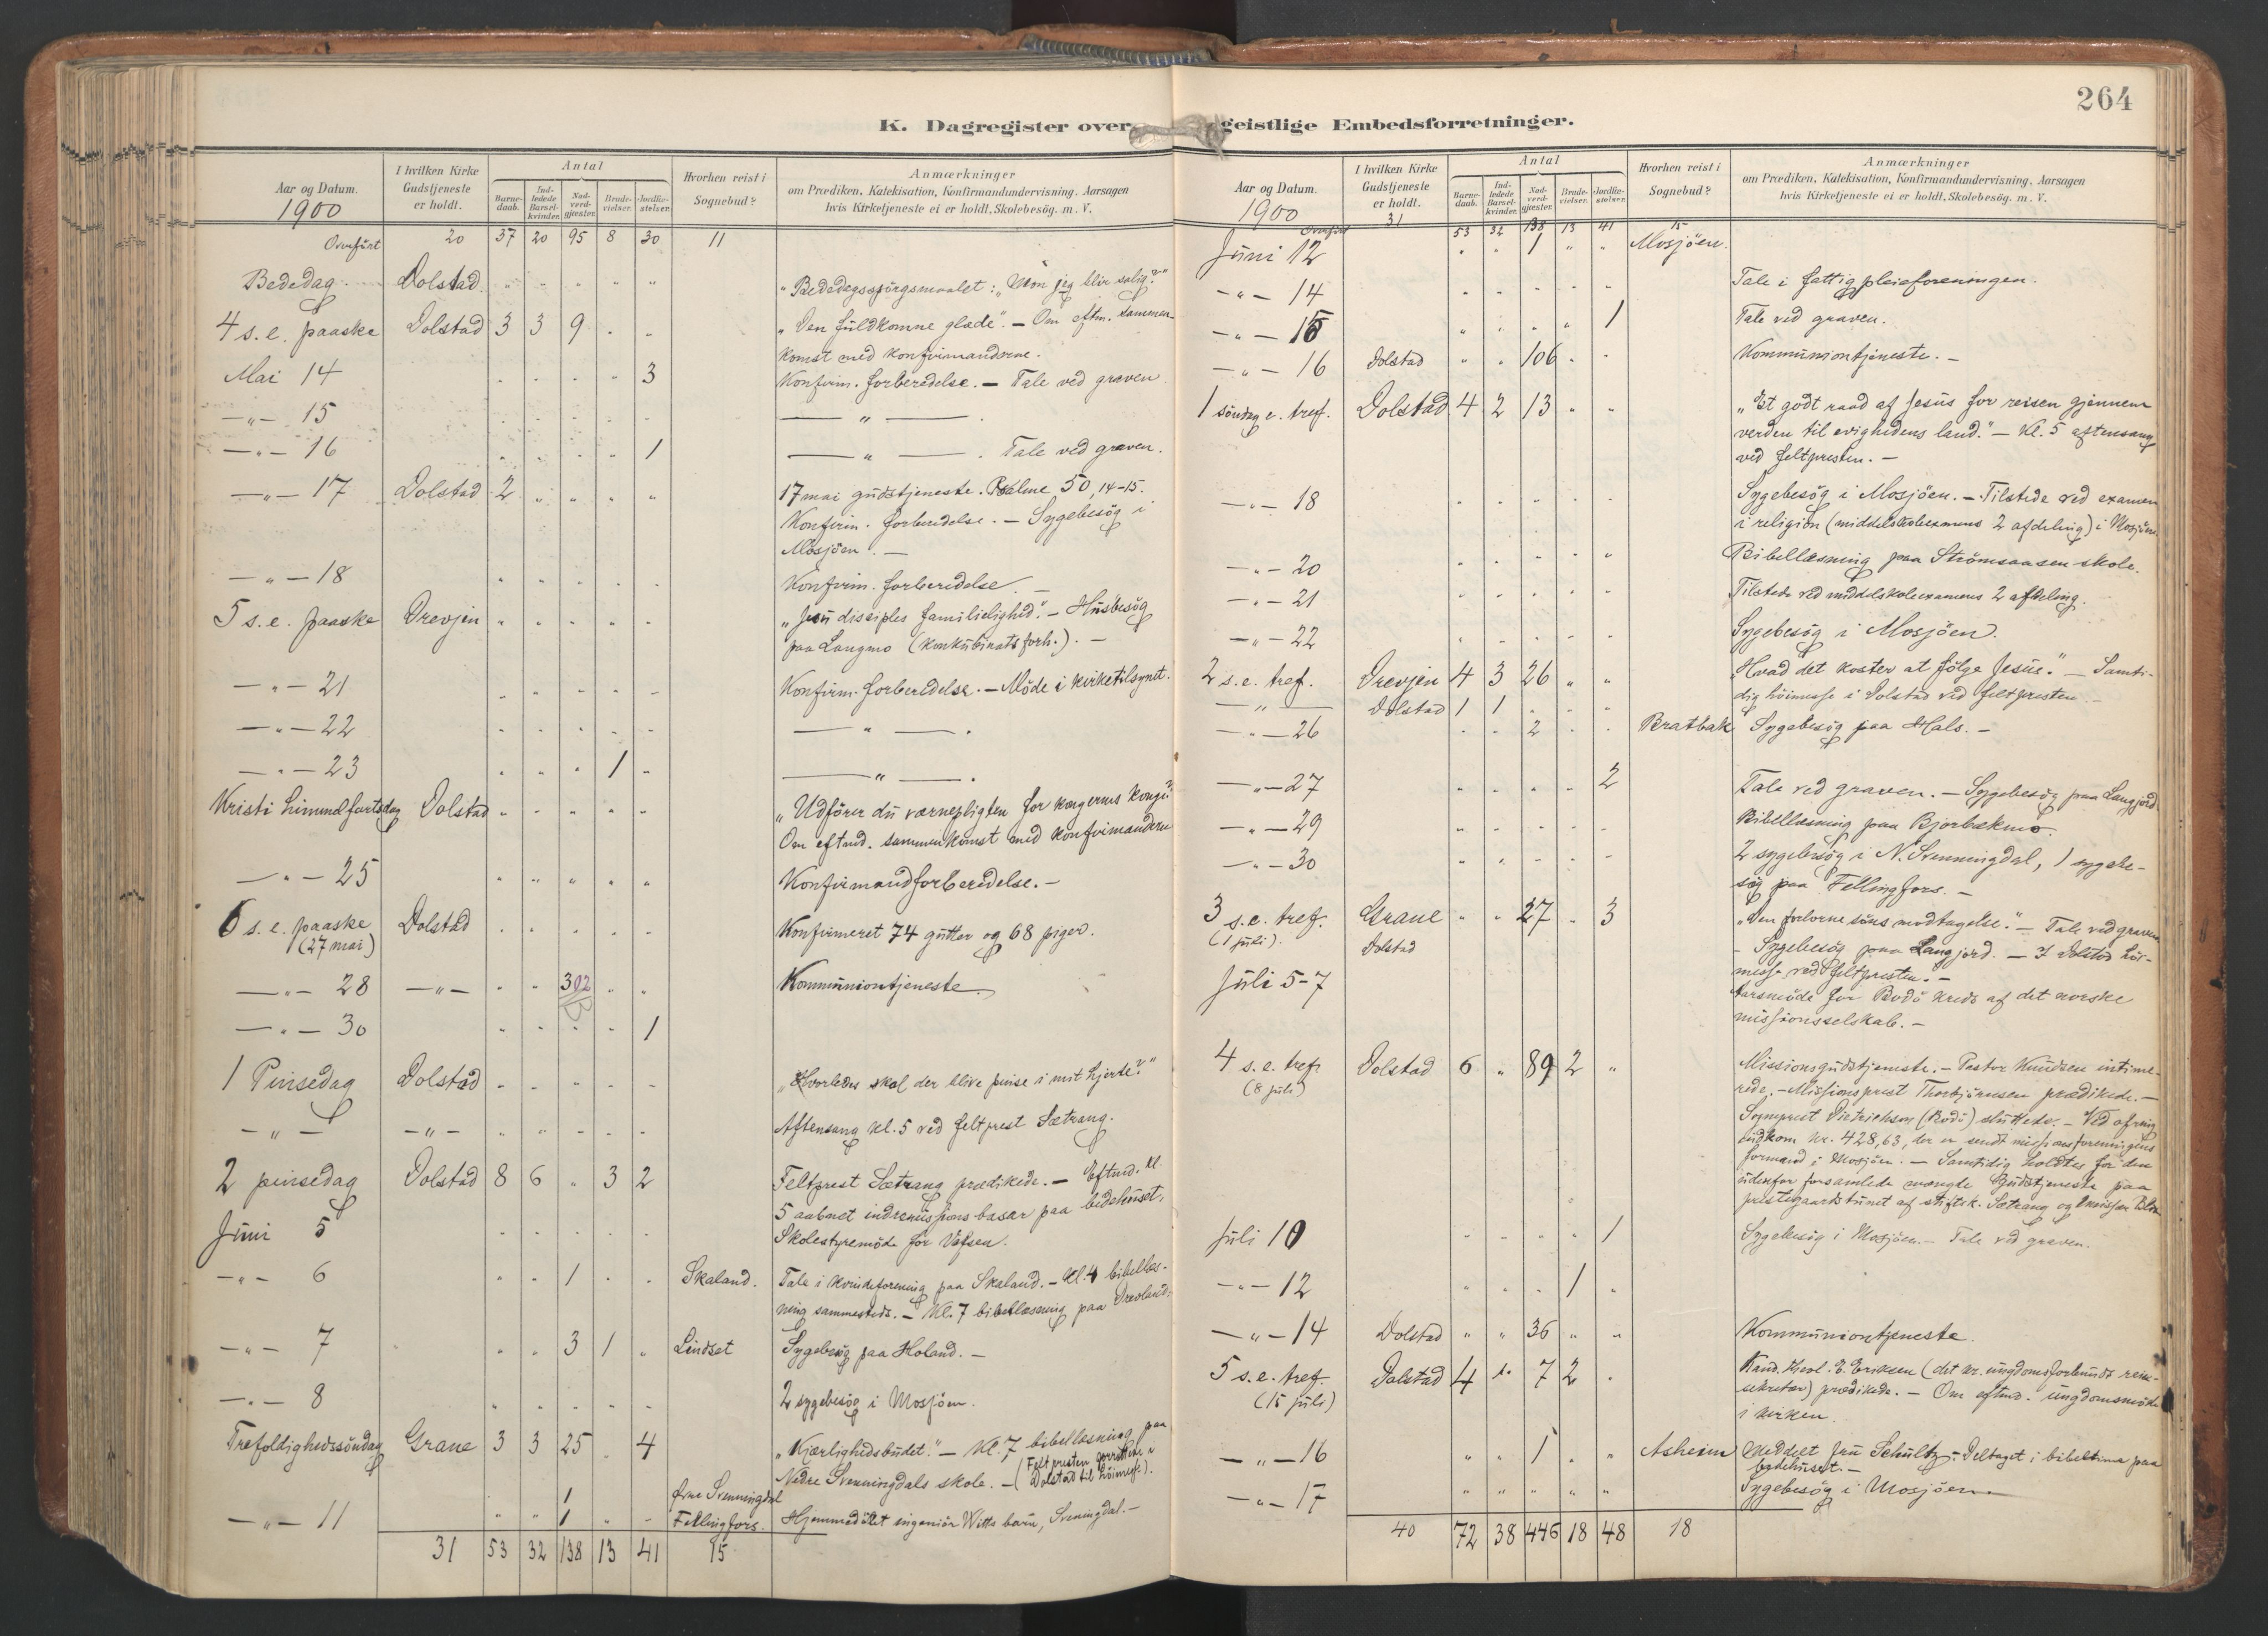 264
K. Dagregister over geistlige Embedsforretninger.
Aar og Datum.
1900
I hvilken Kirke
Gudstjeneste
er holdt.
Antal
Barne-
daab.
Ind-
ledede
Barsel-
kvinder.
Nad-
verd-
gjæster.
Brude-
vielser.
Jordfæ-
stelser.
Hvorhen reist i
Sognebud?
Anmærkninger
om Prædiken, Katekisation, Konfirmandundervisning, Aarsagen
hvis Kirketjeneste ei er holdt, Skolebesøg. m. V.
Overført 20 37 20 95 8 30 11
Bededag. Dolstad. " " " " " "Bededagsspörgsmaalet: "Mon jeg blir salig?"
4 s. e. paaske Dolstad 3 3 9 . . "Den fuldkomne glæde". – Om eftm. sammen
komst med konfirmanderne.
Mai 14 . . . " 3 Konfirm. forberedelse. – Tale ved graven
—"— 15 . . . . . —— " ——.
—"— 16 . . . " 1 —— " ——. Tale ved graven.
—"— 17 Dolstad 2 " " " " 17 mai gudstjeneste. Psalme 50, 14-15.
Konfirm. forberedelse. – Sygebesög i
Mosjöen. –
—"— 18 " . . . . Konfirm. forberedelse. –
5 s. e. paaske Drevjen " . . . . "Jesu disciples familielighed". – Husbesög
paa Langmo (konkubinatsforh.). –
—"— 21 . . . . . Konfirm. forberedelse. – Möde i kirketilsynet.
—"— 22 . . . . . —— " ——.
—"— 23 . . . 1 " —— " ——.
Kristi himmelfartsdag Dolstad " . . . . "Udförer du værnepligten for kongernes konge?"
Om eftmd. sammenkomst med konfirmanderne
—"— 25 " " " " " Konfirmandforberedelse. –
6 s. e. paaske Dolstad . . . . . Konfirmeret 74 gutter og 68 piger.
(27 mai)
—"— 28 —"— " " 302 " " Kommuniontjeneste.
—"— 30 . . . . 1
1 Pinsedag Dolstad . . . . . "Hvorledes skal der blive pinse i mit hjerte?"
—"— —"— . . . . . Aftensang kl. 5 ved feltprest Sætrang.
2 pinsedag Dolstad 8 6 " 3 2 Feltprest Sætrang prædikede. – Eftmd. kl.
5 aabnet indremissions basar paa bedehuset.
Juni 5 . . . . . Skolestyremöde for Vefsen.
—"— 6 " . 1 . . Skaland. Tale i kvindeforening paa Skaland. – Kl. 4 bibellæs-
ning sammesteds. – Kl. 7 bibellæsning paa Drevland.
—"— 7 " " " 3 1 " Lindset Sygebesög paa Holand. –
—"— 8 . . . . . 2 sygebesög i Mosjöen.
Trefoldighedssöndag Grane 3 3 25 " 4 "Kjærlighedsbudet." – Kl. 7 bibellæsning paa
Nedre Svenningdals skole. – (Feltpresten forrettede i
Dolstad til höimesse).
1 Övre Svenningdal
—"— 11 " " 1 " – Fellingfors. Hjemmedöbt ingeniör Witts barn, Svenningdal. –
31 53 32 138 13 41 15
Aar og Datum.
1900
I hvilken Kirke
Gudstjeneste
er holdt.
Antal
Barne-
daab.
Ind-
ledede
Barsel-
kvinder.
Nad-
verd-
gjæster.
Brude-
vielser.
Jordfæ-
stelser.
Hvorhen reist i
Sognebud?
Anmærkninger
om Prædiken, Katekisation, Konfirmandundervisning, Aarsagen
hvis Kirketjeneste ei er holdt, Skolebesøg. m. V.
Overført 31 53 32 138 13 41 15
Juni 12 " " 1 " " Mosjöen.
—"— 14 . . . . . Tale i fattigpleieforeningen.
—"— 15 " . . " 1 Tale ved graven.
—"— 16 Dolstad " " 106 . . Kommuniontjeneste. –
1 söndag e. tref. Dolstad 4 2 13 " " "Et godt raad af Jesus for reisen gjennem
verden til evighedens land." – Kl. 5 aftensang
ved feltpresten. –
—"— 18 . . . . . Sygebesög i Mosjöen. – Tilstede ved examen
i religion (middelskoleexamens 2 afdeling) i Mosjöen.
—"— 20 . . . . . Bibellæsning paa Strömsaasen skole.
—"— 21 . . . . . Tilstede ved middelskoleexamens 2 afdeling.
—"— 22 . . . . . Sygebesög i Mosjöen.
2 s. e. tref. Drevjen 4 3 26 " " "Hvad det koster at fölge Jesus." – Samti-
dig höimesse i Dolstad ved feltpresten. –
—"— Dolstad 1 1 . . .
—"— 26 . . 2 . . Bratbak Sygebesög paa Hals. –
—"— 27 . . . . 2 Tale ved graven. – Sygebesög paa Langjord
—"— 29 . . . . . Bibellæsning paa Bjorbækmo.
—"— 30 . . . . . 2 sygebesög i N. Svenningdal, 1 sygebe-
søg paa Fellingfors. –
3 s. e. tref. Grane " " 27 . 3 "Den forlorne söns modtagelse." – Tale ved graven
(1 juli). Dolstad – Sygebesög paa Langjord. – I Dolstad höi-
messe ved feltpresten. –
Juli 5-7 Aarsmöde for Bodö kreds af det norske
missionsselskab. –
4 s. e. tref. Dolstad 6 " 89 2 " Missionsgudstjeneste. – Pastor Knudsen intime-
(8 juli) rede. – Missionsprest Thorbjörnsen prædikede. –
Sogneprest Dietrichson (Bodö) sluttede. – Ved ofring
indkom kr. 428,63, der er sendt missionsforeningens
formand i Mosjöen. – Samtidig holdtes for den
udenfor forsamlede mængde gudstjeneste paa
prestegaardstunet af stiftsk. Sætrang og
Juli 10 . . . . 1 Sygebesög i Mosjöen. – Tale ved graven.
—"— 12 " . . 1 .
—"— 14 Dolstad " " 36 " " Kommuniontjeneste.
5 s. e. tref. Dolstad 4 1. 7 2 . Kand. theol. E. Eriksen (det kr. ungdomsforbunds reise-
(15 juli) sekretær) prædikede. – Om eftmd. ungdomsmöde
i kirken.
—"— 16 " " 1 . " Asheim Meddelt fru Schultz. – Deltaget i bibeltime paa
bedehuset. –
—"— 17 " " " " " Sygebesög i Mosjöen. –
40 72 38 446 18 48 18